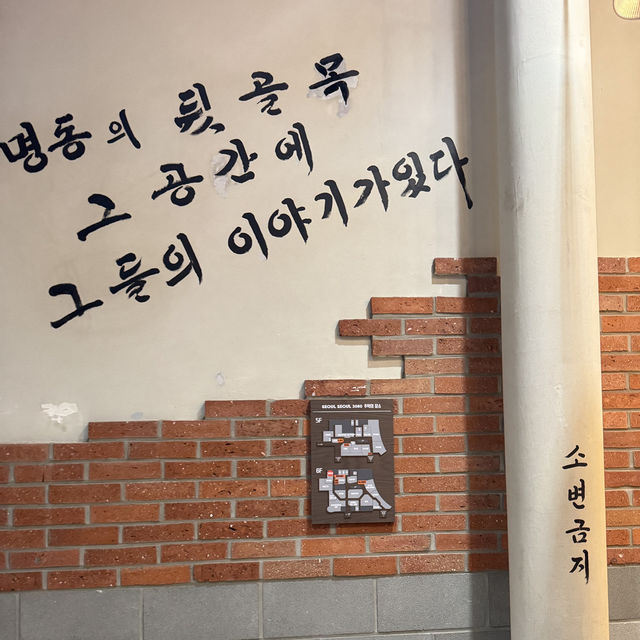 명동의 뒷골목
그 공간에
그들의 이야기가있다
SEOUL SEOUL 3080
5F
6F
소변금지